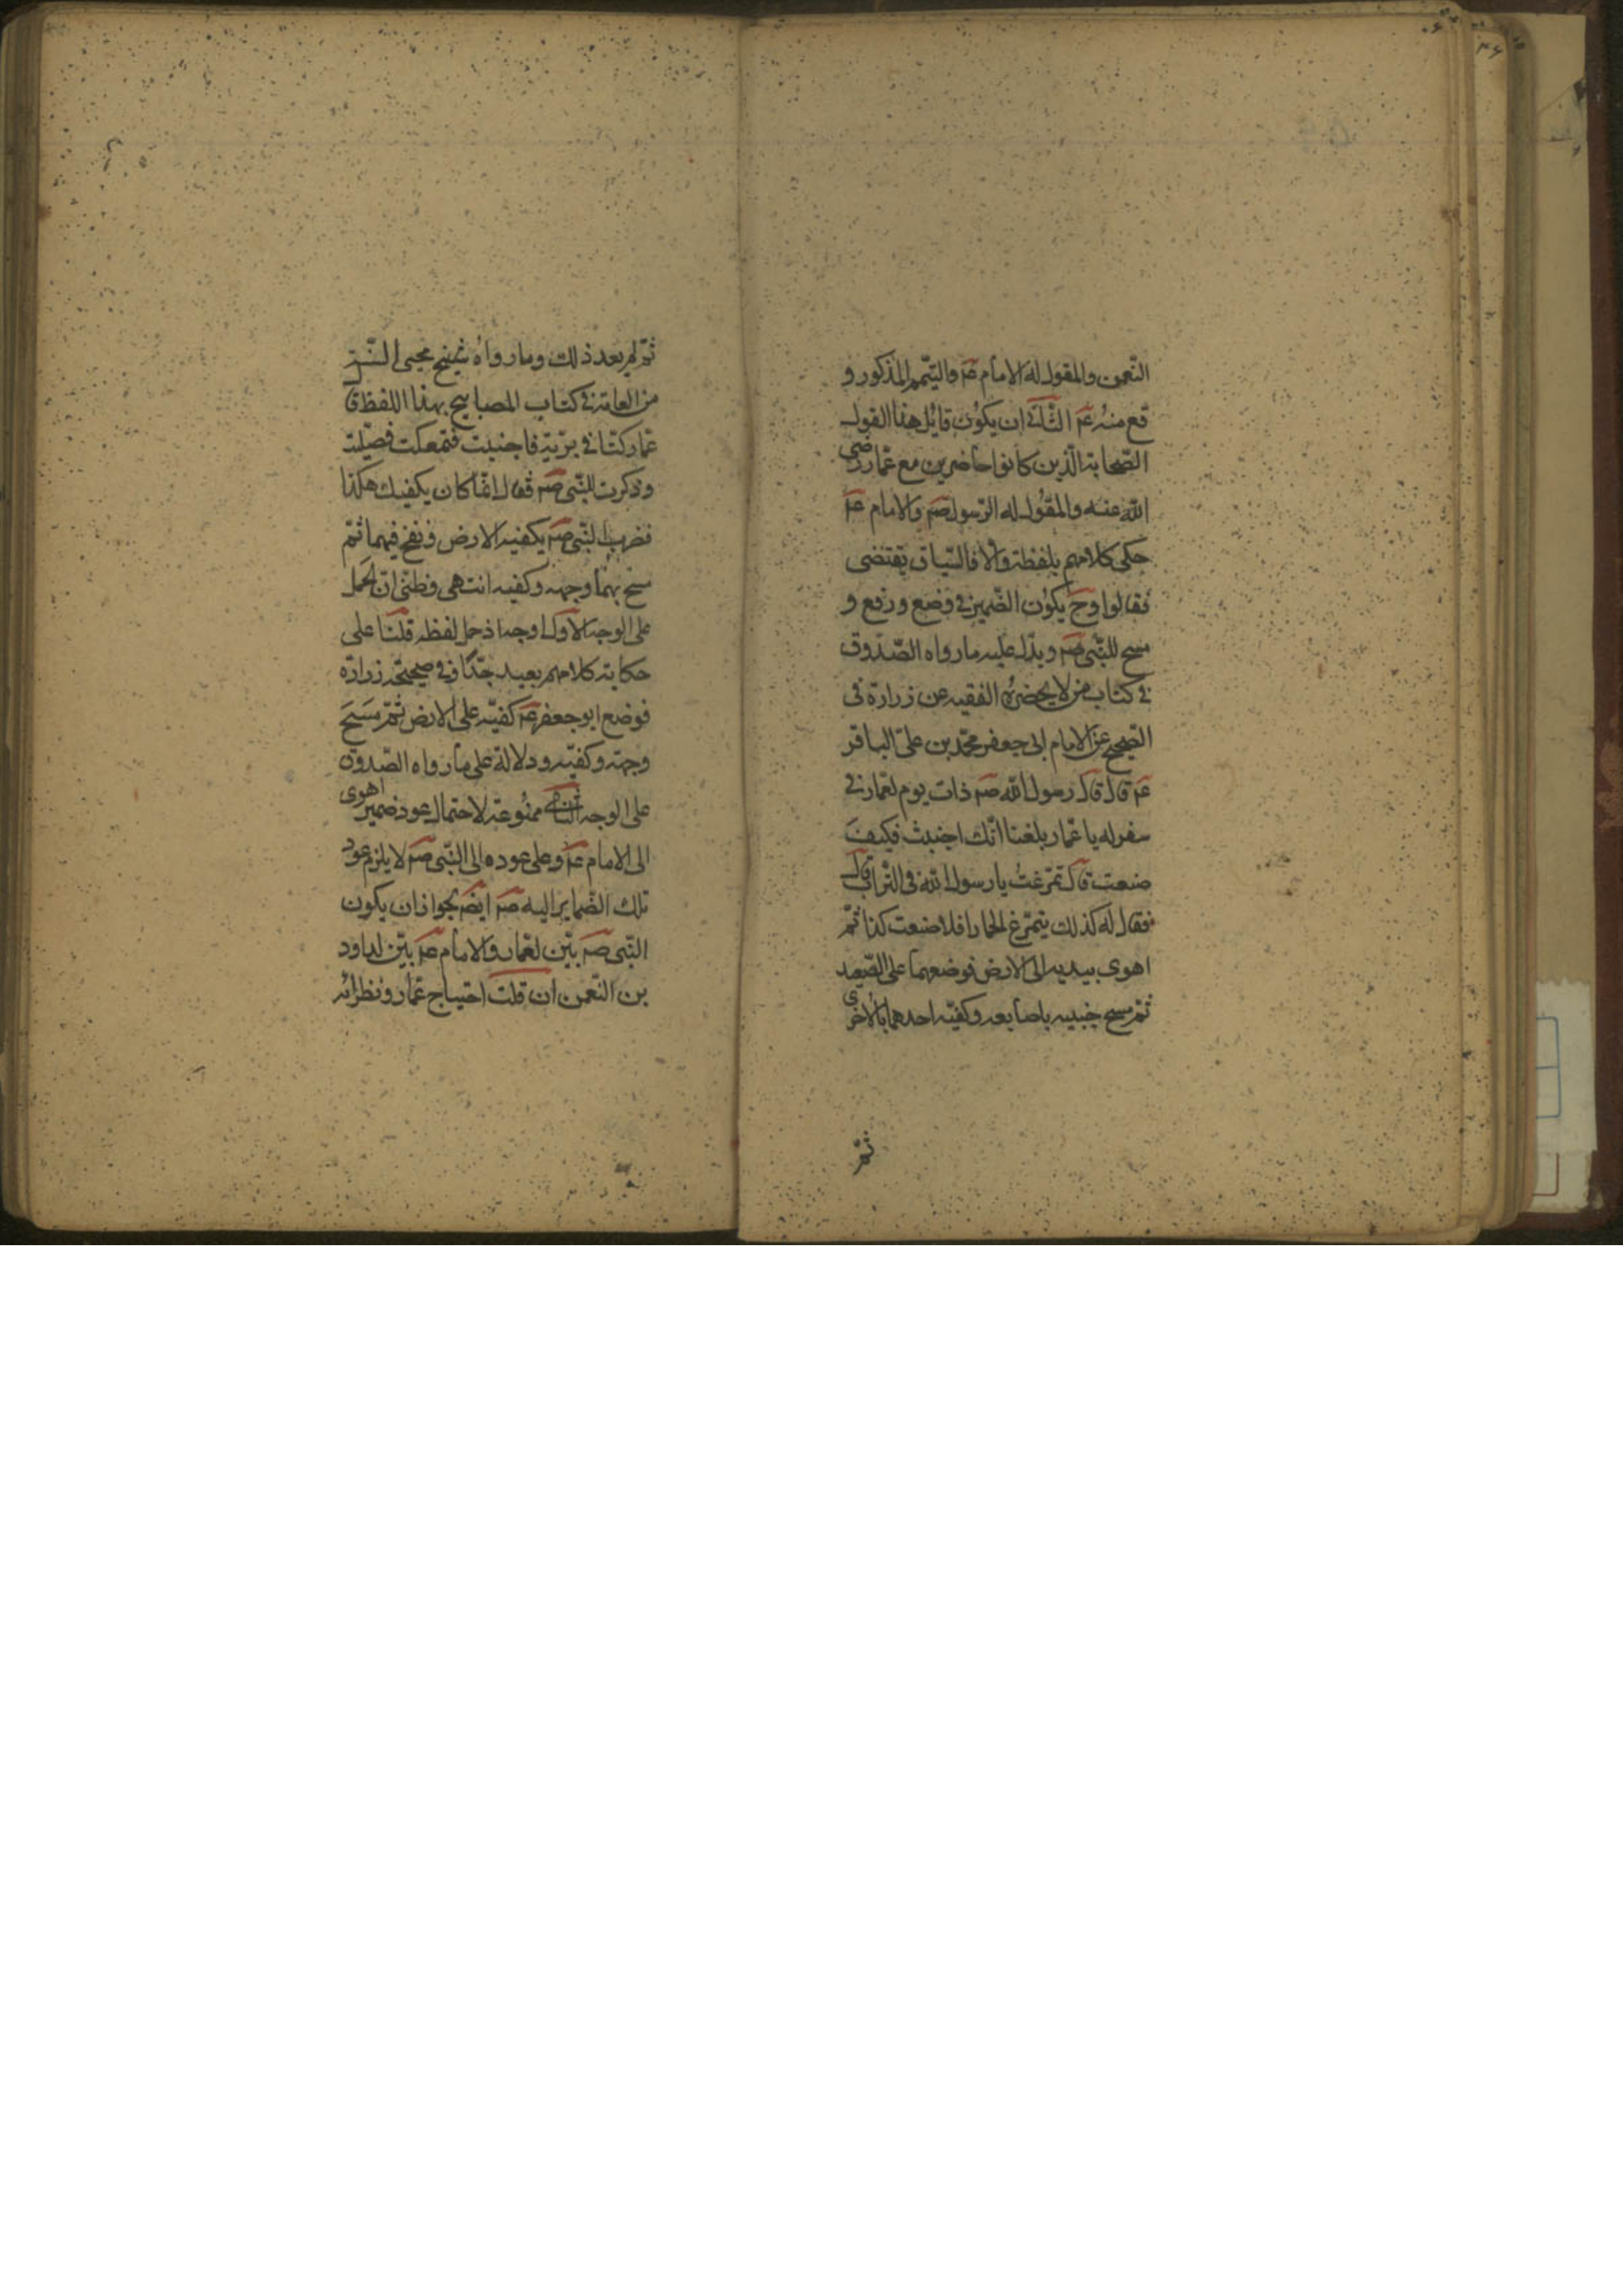 النعمن والمقول له الامام عم والتيمم المذكور و
قع منه عم الثالث ان يكون قايل هذا القول
الصحابة الذين كانوا حاضرين مع عمار رضى
الله عنه والمقول له الرسول صم والامام عم
حكى كلامهم بلفظه والا فالسياق يقتضى
فقالوا وح يكون الضمير فى وضع ورفع و
مسح للنبى صم ويدل عليه مارواه الصدوق
فى كتاب من لا يحضره الفقيه عن زرارة فى
الصحيح عن الامام ابى جعفر محمد بن على الباقر
عم قال قال رسول الله صم ذات يوم لعمار فى
سفر له يا عمار بلغنا انك اجنبت فكيف
صنعت قال تمرغت يا رسول الله فى التراب قال
فقال له كذلك يتمرغ الحمار افلا صنعت كذا ثم
اهوى بيديه الى الارض فوضعهما على الصعيد
ثم مسح جنبيه باصابعه وكفيه احدهما بالاخرى
ثم
ثم لم يعد ذلك ومارواه شيخ محيى السنة
من العامة فى كتاب المصابيح بهذا اللفظ ق
عمار كنا فى برية فاجنبت فتمعكت فصليت
وذكرت للنبى صم فقال انما كان يكفيك هكذا
فضرب النبى صم بكفيه الارض ونفخ فيهما ثم
مسح بهما وجهه وكفيه انتهى وظنى ان الحمل
على الوجه الاول اوجه اذ حمل لفظه قلنا على
حكاية كلامهم بعيد جدا وفى صحيحة زرارة
فوضع ابو جعفر عم كفيه على الارض ثم مسح
وجهه وكفيه ودلالة على مارواه الصدوق
على الوجه الثالث ممنوعة لاحتمال عود ضمير اهوى
الى الامام عم وعلى عوده الى النبى صم لا يلزم عود
تلك الضماير اليه صم ايض لجواز ان يكون
النبى صم بين لعمار والامام عم بين لداود
بن النعمن ان قلت احتياج عمار ونظرائه